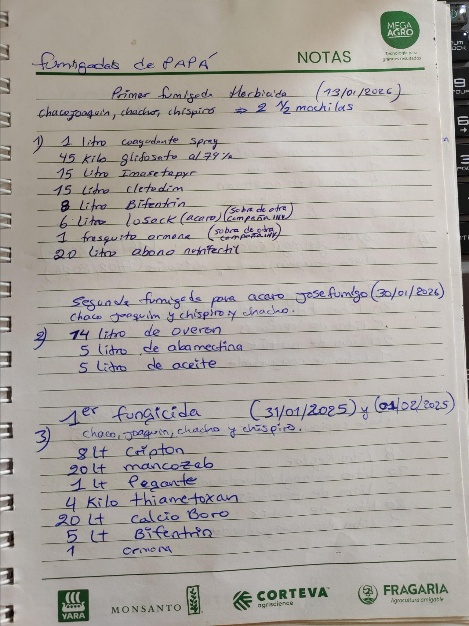 MEGA
AGRO
Tecnología para
grandes resultados
NOTAS
fumigadas de PAPÁ
Primer fumigada Herbicida (13/01/2026)
chaco joaquin, chacho, chispiro => 2 1/2 mochilas
1) 1 litro coagudante spray
45 Kilo glifosato al 79%
15 Litro Imasetapyr
15 Litro cletodim
8 Litro Bifentrin
6 Litro losack (acaro) (sobra de otra compañia INV)
1 frasquito armona (sobra de otra compañia INV)
20 Litro abono nutrifertil
Segunda fumigada para acaro jose fumigo (30/01/2026)
chaco joaquim y chispiro y chacho.
2) 14 litro de overon
5 litro de abamectina
5 litro de aceite
1er fungicida (31/01/2025) y (01/02/2025)
3) chaco, joaquin, chacho y chispiro.
8 Lt cripton
20 Lt mancozeb
1 Lt Pegante
4 Kilo thiametoxan
20 Lt calcio Boro
5 Lt Bifentrin
1 ormona
YARA
MONSANTO
CORTEVA
agriscience
FRAGARIA
Agricultura amigable